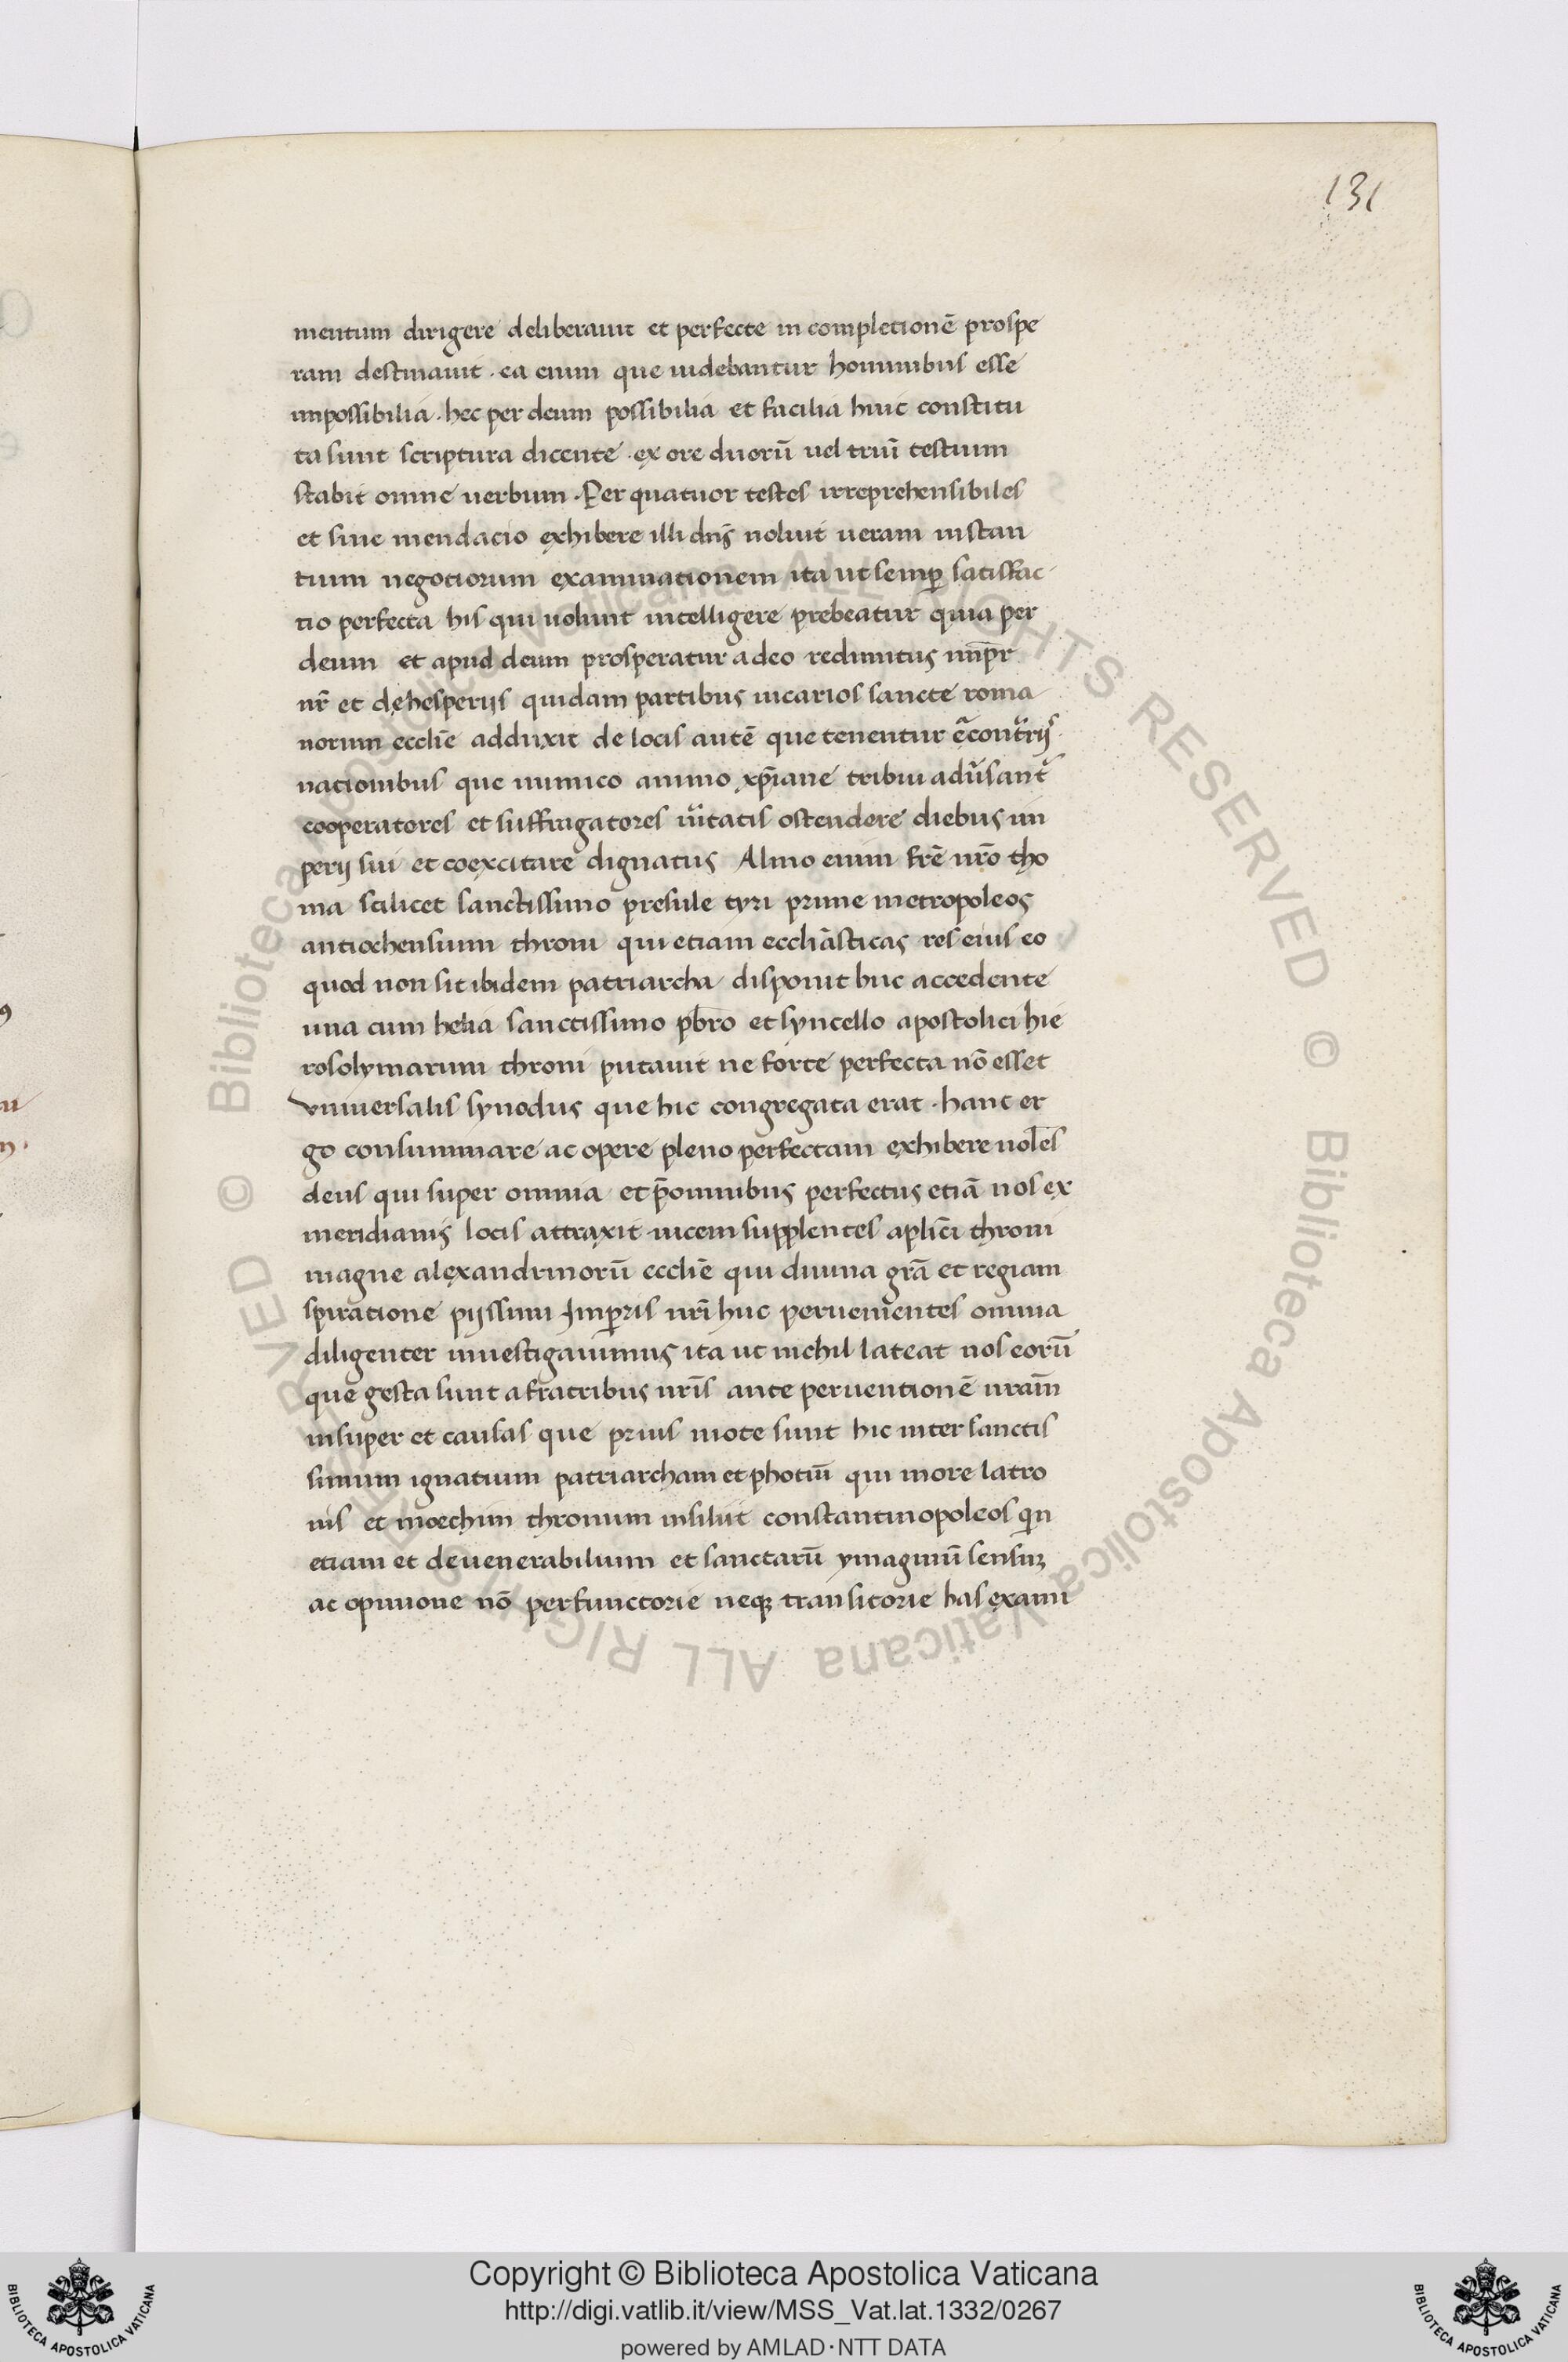 131
mentum dirigere deliberauit et perfecte in completionē prospe
ram destinauit · ea enim que uidebantur hominibus esse
impossibilia · hec per deum possibilia et facilia huic constitu
ta sunt scriptura dicente · ex ore duorū uel triū testium
stabit omne uerbum · Per quatuor testes irreprehensibiles
et sine mendacio exhibere illi dn̄s uoluit ueram instan
tium negotiorum examinationem ita ut semp̱ satisfac
tio perfecta his qui uolunt intelligere prebeatur quia per
deum et apud deum prosperatur a deo redimitus imp̄r
nr̄ et de hesperijs quidam partibus uicarios sancte roma
norum eccl̄ie adduxit de locis autē que tenentur a contrarijs
nationibus que inimico animo xp̄iane tribui aduersantur
cooperatores et suffragatores ueritatis ostendere diebus im
perij sui et coexcitare dignatus Almo enim fr̄e nr̄o tho
ma scilicet sanctissimo presule tyri prime metropoleos
antiochensium throni qui etiam eccl̄iasticas res eius eo
quod non sit ibidem patriarcha disponit huc accedente
una cum helia sanctissimo pb̄ro et syncello apostolici hie
rosolymarum throni putauit ne forte perfecta nō esset
vniuersalis synodus que hic congregata erat · hanc er
go consummare ac opere pleno perfectam exhibere uolēs
deus qui super omnia et p̄ omnibus perfectus etiā nos ex
meridianis locis attraxit uicem supplentes apl̄ici throni
magne alexandrinorū eccl̄ie qui diuina grā et regiam
spiratione pijssimi Imp̱ris nr̄i huc peruenientes omnia
diligenter inuestigauimus ita ut nichil lateat nos eorū
que gesta sunt a fratribus nr̄is ante peruentionē nr̄am
insuper et causas que prius mote sunt hic inter sanctis
simum ignatium patriarcham et photiū qui more latro
nis et moechim thronum insiluit constantinopoleos quin
etiam et de uenerabilium et sanctarū ymaginū sensuꝫ
ac opinione nō perfunctorie neqꝫ transitorie has exami
© Biblioteca Apostolica Vaticana ALL RIGHTS RESERVED © Biblioteca Apostolica Vaticana ALL RIGHTS RESERVED
Copyright © Biblioteca Apostolica Vaticana
http://digi.vatlib.it/view/MSS_Vat.lat.1332/0267
powered by AMLAD·NTT DATA
BIBLIOTECA APOSTOLICA VATICANA
BIBLIOTECA APOSTOLICA VATICANA